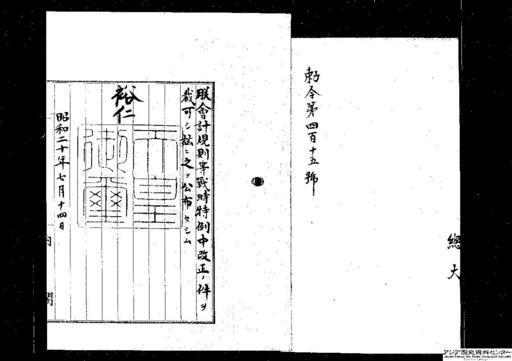 勅令第四百十五號
總
大
朕會計規則等戰時特例中改正ノ件ヲ
裁可シ玆ニ之ヲ公布セシム
裕仁
天皇御璽
昭和二十年七月十四日
内閣
アジア歴史資料センター